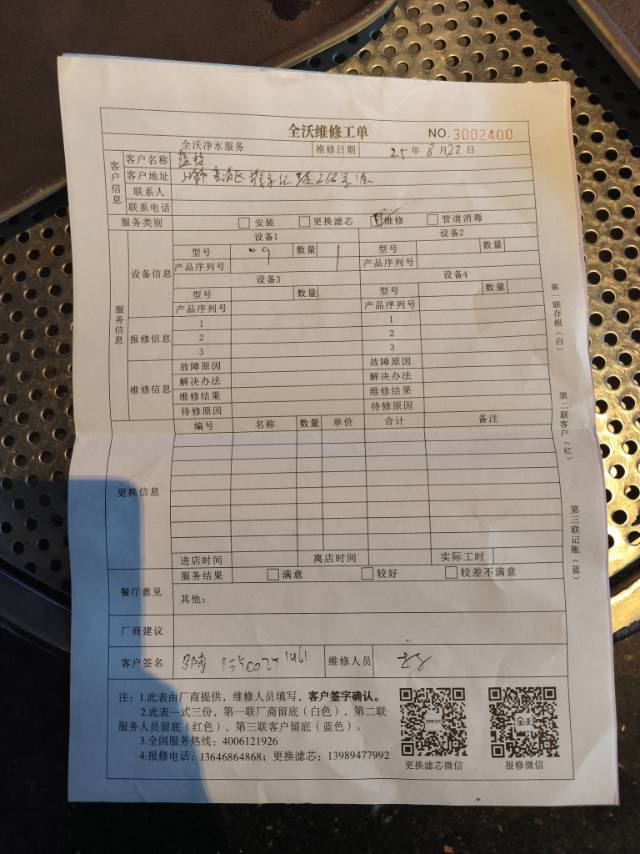 全沃维修工单
NO. 3002400
全沃净水服务 维修日期 25年8月22日
客户信息
客户名称
客户地址
联系人
联系电话
服务类别 安装 更换滤芯 维修 管道消毒
服务信息
设备信息
设备1 设备2
型号 数量 1 型号 数量
产品序列号 产品序列号
设备3 设备4
型号 数量 型号 数量
产品序列号 产品序列号
报修信息
1 1
2 2
3 3
维修信息
故障原因 故障原因
解决办法 解决办法
维修结果 维修结果
待修原因 待修原因
更换信息
编号 名称 数量 单价 合计 备注
进店时间 离店时间 实际工时
餐厅意见
服务结果 满意 较好 较差不满意
其他:
厂商建议
客户签名 维修人员
注:1.此表由厂商提供,维修人员填写,客户签字确认。
2.此表一式三份,第一联厂商留底(白色),第二联
服务人员留底(红色),第三联客户留底(蓝色)。
3.全国服务热线:4006121926
4.报修电话:13646864868;更换滤芯:13989477992
更换滤芯微信
报修微信
第一联存根(白)
第二联客户(红)
第三联记账(蓝)